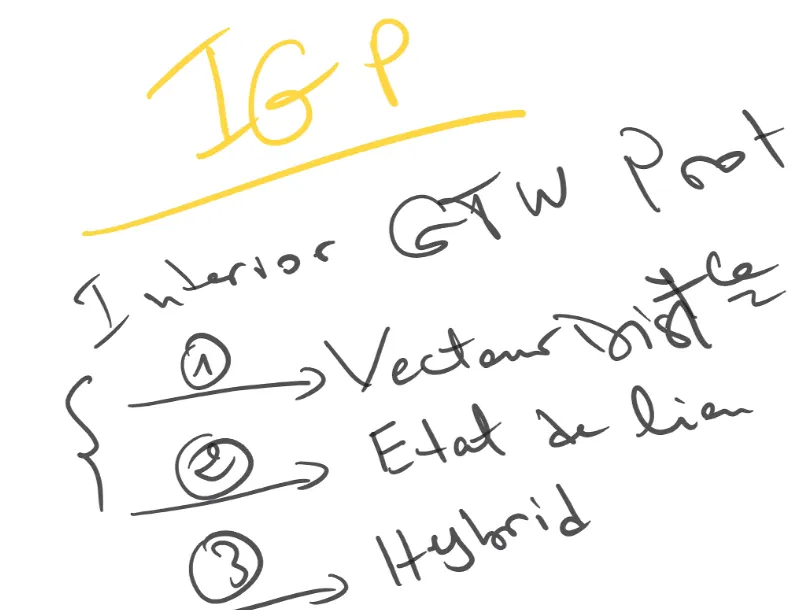 IGP
Interior GTW Prot
1 → Vecteur Distce
2 → Etat de lien
3 → Hybrid